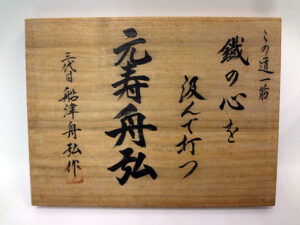 この道一筋
鐵の心を
汲んで打つ
元寿舟弘
三代目 船津舟弘作